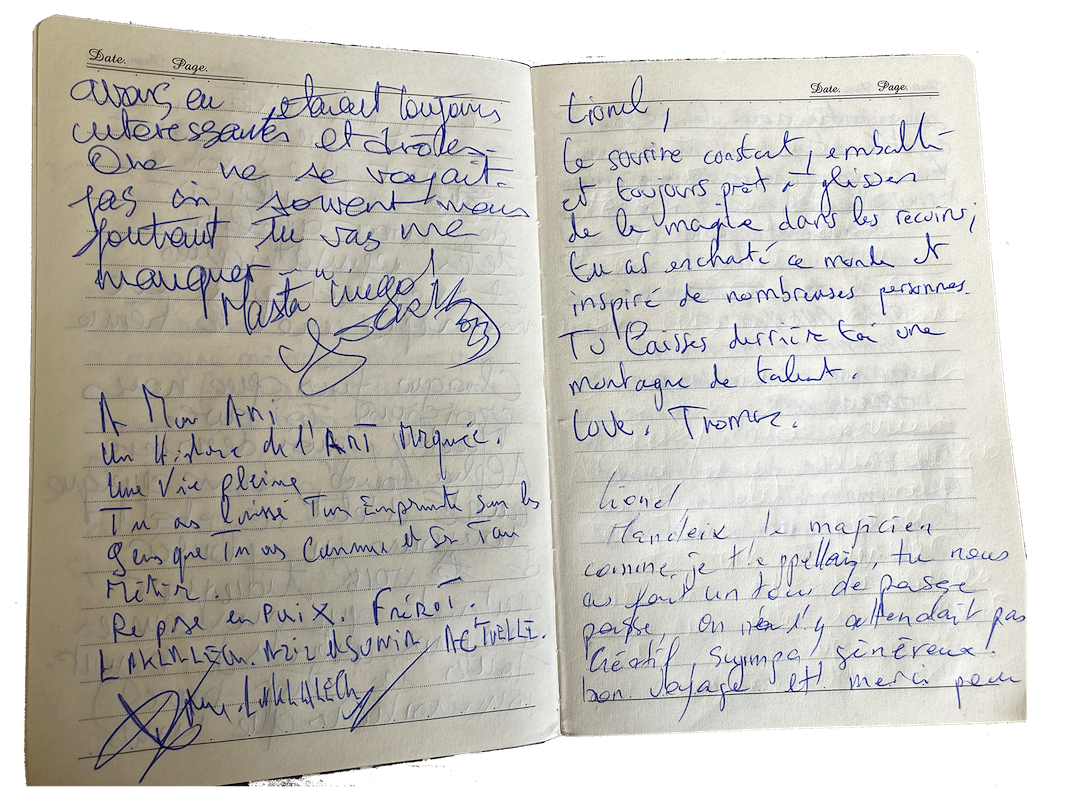 Date. Page.
avons eu étaient toujours
intéressantes et drôles.
One ne se voyait.
pas souvent mais
pourtant tu vas me
manquer
"Masta
A Mon Ami
Un Histoire de l'ART Marquée.
Une Vie pleine
Tu as laissé Tun Emprunte sur les
gens que Tu as Connu et Sur Ton
Métier.
Repose en Paix. Frérot.
LAKLALECH. Aziz
LAKLALECH
Date. Page.
Lionel,
Le sourire constant, emballé
et toujours prêt à glisser
de la magie dans les recoins,
tu as enchanté ce monde et
inspiré de nombreuses personnes.
Tu laisses derrière toi une
montagne de talent.
Love. Thomas.
Lionel
Mandeix le magicien
comme je t'appellais, tu nous
as fait un tour de passe
passe, on l'y attendait pas
Créatif, sympa, généreux.
bon voyage et merci pour